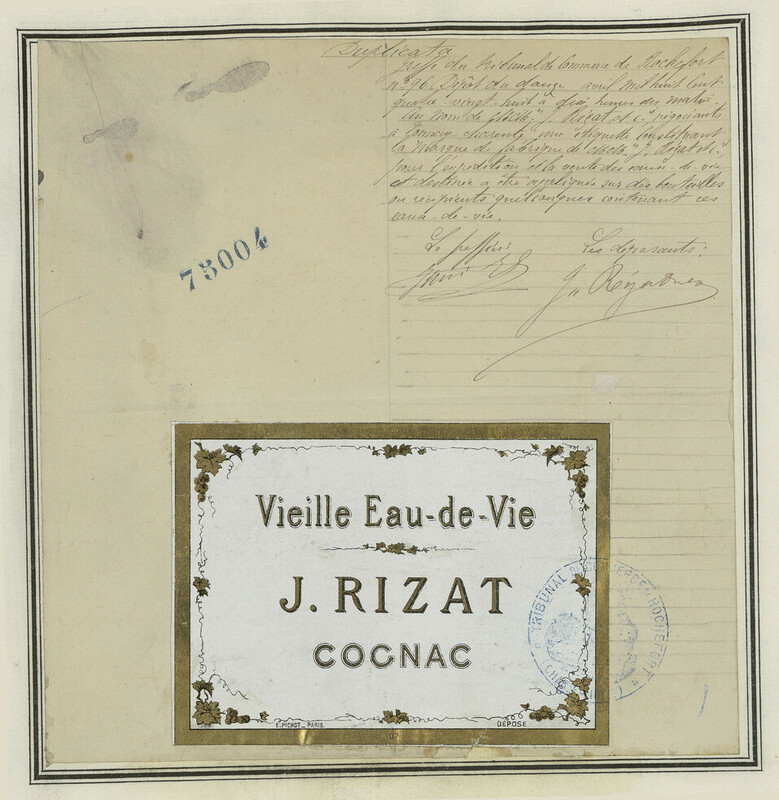 Duplicata
Greffe du Tribunal de Commerce de Rochefort
n° 96. Dépôt du douze avril mil huit cent
quatre-vingt-huit à dix heures du matin
au nom de MM. J. Rizat et Cie, négociants
à Cognac, Charente, une étiquette constituant
la marque de fabrique de MM. J. Rizat et Cie,
pour l'expédition et la vente des eaux-de-vie
et destinée à être appliquée sur des bouteilles
ou récipients quelconques contenant ces
eaux-de-vie.
Le greffier: Les déposants:
75004
Vieille Eau-de-Vie
J. RIZAT
COGNAC
E. PICHOT_PARIS.
DÉPOSÉ
TRIBUNAL DE COMMERCE ROCHEFORT